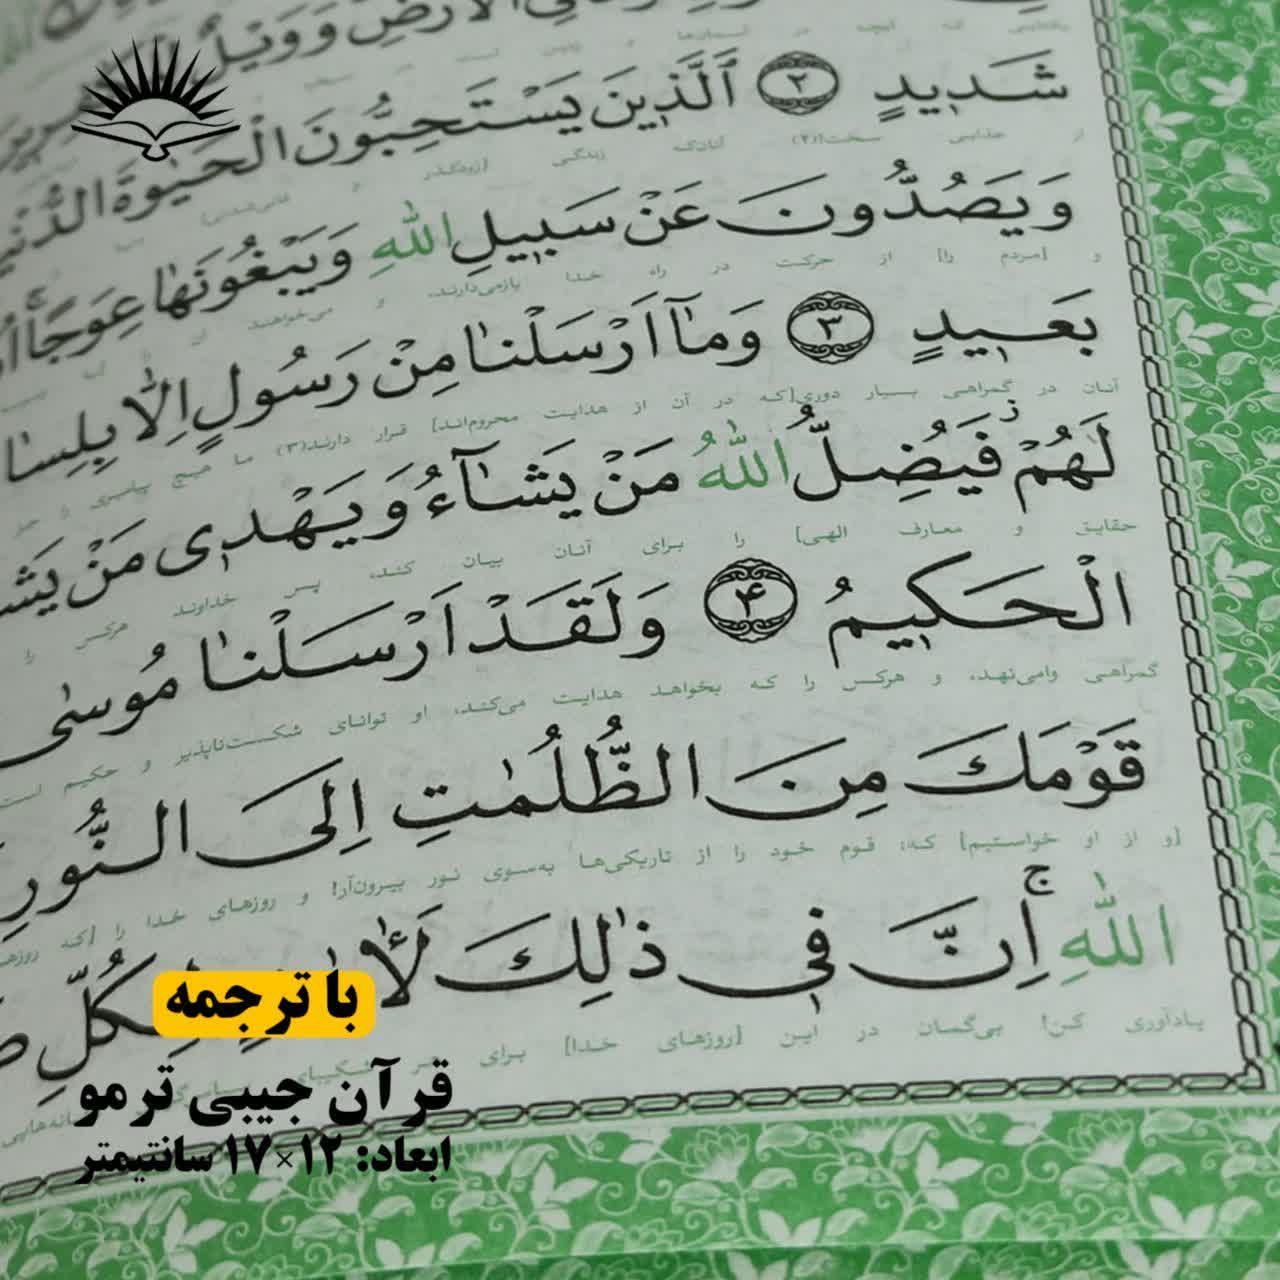 شَدیدٍ ﴿۲﴾ اَلَّذینَ یَسْتَحِبُّونَ الْحَیٰوةَ الدُّنْیا
از عذابی سخت!(۲) آنان‌که زندگی [زودگذر و فانی‌شدنی]
وَ یَصُدُّونَ عَنْ سَبیلِ اللهِ وَ یَبْغُونَهٰا عِوَجاً
و [مردم را] از حرکت در راه خدا بازمی‌دارند، و می‌خواهند
بَعیدٍ ﴿۳﴾ وَ مٰا اَرْسَلْنٰا مِنْ رَسُولٍ اِلّٰا بِلِسٰا
آنان در گمراهی بسیار دوری[که در آن از هدایت محروم‌اند] قرار دارند(۳) ما هیچ پیامبری را جز
لَهُمْ ز فَیُضِلُّ اللهُ مَنْ یَشٰاءُ وَ یَهْدی مَنْ یَشٰ
حقایق و معارف الهی] را برای آنان بیان کند، پس خداوند هرکس را
الْحَکیمُ ﴿۴﴾ وَ لَقَدْ اَرْسَلْنٰا مُوسیٰ
گمراهی وامی‌نهد، و هرکس را که بخواهد هدایت می‌کند، او توانای شکست‌ناپذیر و حکیم است
قَوْمَکَ مِنَ الظُّلُمٰتِ اِلَی النُّورِ
[و از او خواستیم] که: قوم خود را از تاریکی‌ها به‌سوی نور بیرون‌آر! و روزهای خدا را [که روزها
اللهِ ج اِنَّ فی ذٰلِکَ لَاٰ لِکُلِّ
یادآوری کن! بی‌گمان در این [روزهای خدا] برای هر
با ترجمه
قرآن جیبی ترمو
ابعاد: ۱۲×۱۷ سانتیمتر